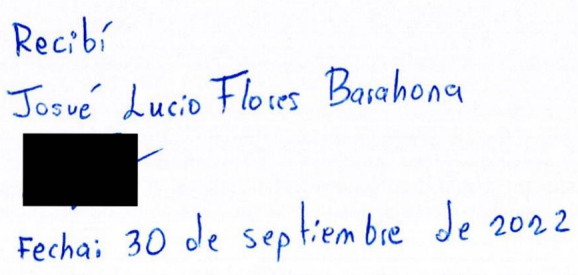 Recibí
Josué Lucio Flores Barahona
Fecha: 30 de septiembre de 2022